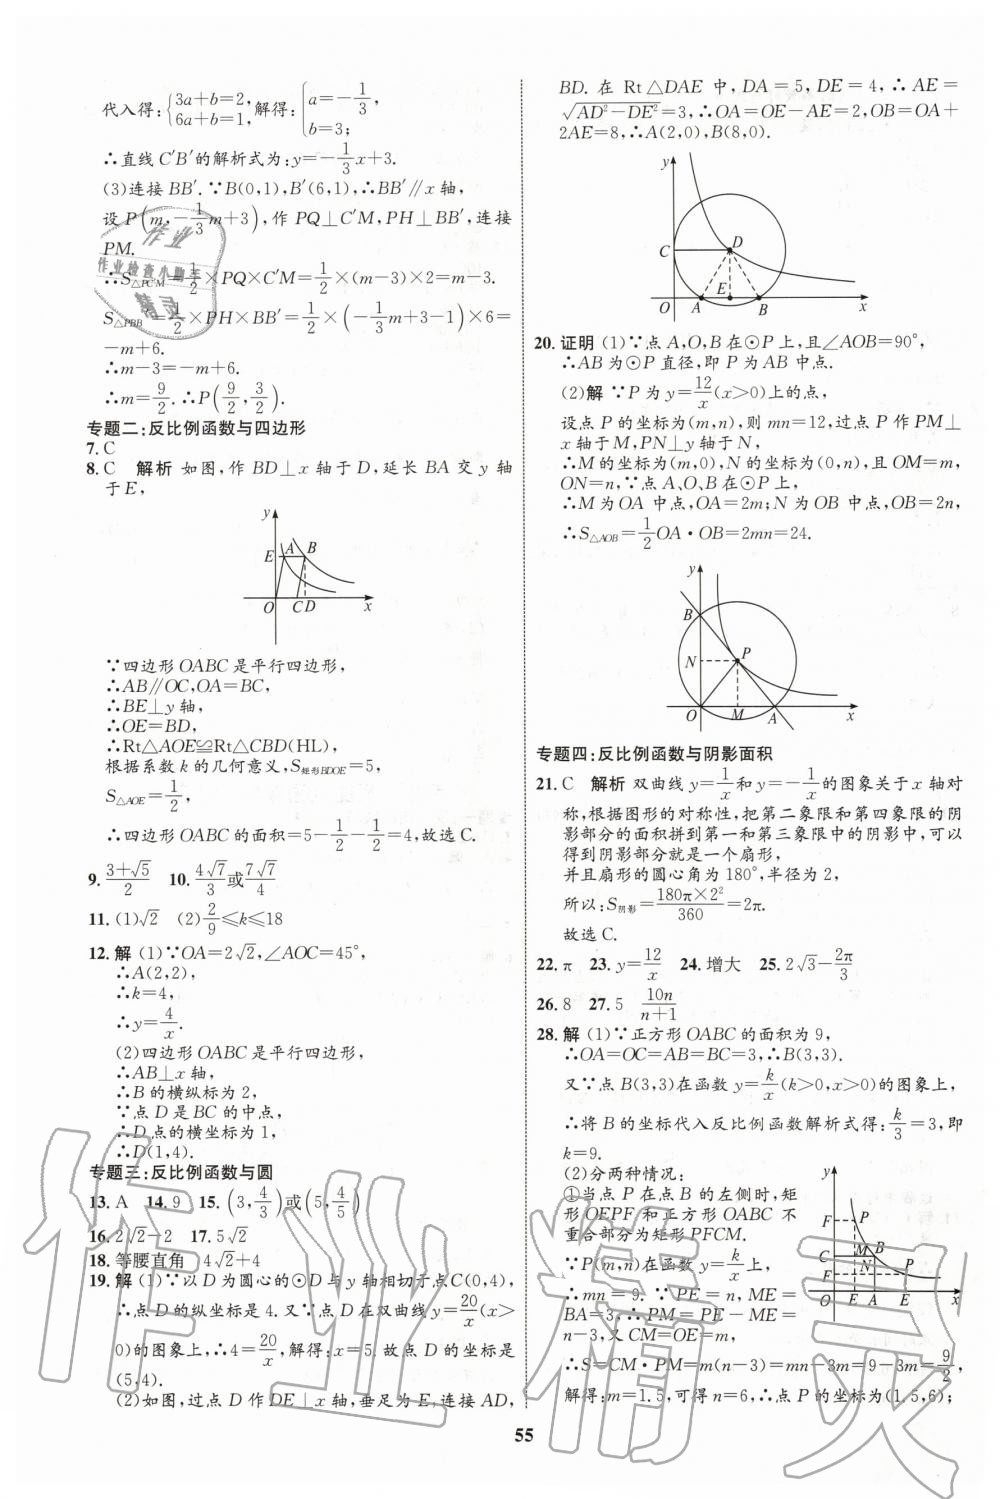 代入得:{3a+b=2, 6a+b=1, 解得:{a=-1/3, b=3;
∴直线 C′B′的解析式为:y=-1/3x+3.
(3)连接 BB′.∵B(0,1),B′(6,1),∴BB′∥x 轴,
设 P(m,-1/3m+3),作 PQ⊥C′M,PH⊥BB′,连接
PM.
∴S△PC′M=1/2×PQ×C′M=1/2×(m-3)×2=m-3.
S△PBB′=1/2×PH×BB′=1/2×(-1/3m+3-1)×6=
-m+6.
∴m-3=-m+6.
∴m=9/2.∴P(9/2,3/2).
专题二:反比例函数与四边形
7.C
8.C 解析 如图,作 BD⊥x 轴于 D,延长 BA 交 y 轴
于 E,
y
E A B
O C D x
∵四边形 OABC 是平行四边形,
∴AB∥OC,OA=BC,
∴BE⊥y 轴,
∴OE=BD,
∴Rt△AOE≌Rt△CBD(HL),
根据系数 k 的几何意义,S矩形BDOE=5,
S△AOE=1/2,
∴四边形 OABC 的面积=5-1/2-1/2=4,故选 C.
9.(3+√5)/2 10.4√7/3或7√7/4
11.(1)√2 (2)2/9≤k≤18
12.解 (1)∵OA=2√2,∠AOC=45°,
∴A(2,2),
∴k=4,
∴y=4/x.
(2)四边形 OABC 是平行四边形,
∴AB⊥x 轴,
∴B 的横纵标为 2,
∵点 D 是 BC 的中点,
∴D 点的横坐标为 1,
∴D(1,4).
专题三:反比例函数与圆
13.A 14.9 15.(3,4/3)或(5,4/5)
16.2√2-2 17.5√2
18.等腰直角 4√2+4
19.解 (1)∵以 D 为圆心的⊙D 与 y 轴相切于点 C(0,4),
∴点 D 的纵坐标是 4.又∵点 D 在双曲线 y=20/x(x>
0)的图象上,∴4=20/x,解得:x=5.故点 D 的坐标是
(5,4).
(2)如图,过点 D 作 DE⊥x 轴,垂足为 E,连接 AD,
BD. 在 Rt△DAE 中, DA=5, DE=4, ∴AE=
√(AD²-DE²)=3,∴OA=OE-AE=2,OB=OA+
2AE=8,∴A(2,0),B(8,0).
y
C D
O A E B x
20.证明 (1)∵点 A,O,B 在⊙P 上,且∠AOB=90°,
∴AB 为⊙P 直径,即 P 为 AB 中点.
(2)解 ∵P 为 y=12/x(x>0)上的点,
设点 P 的坐标为(m,n),则 mn=12,过点 P 作 PM⊥
x 轴于 M,PN⊥y 轴于 N,
∴M 的坐标为(m,0),N 的坐标为(0,n),且 OM=m,
ON=n,∵点 A、O、B 在⊙P 上,
∴M 为 OA 中点,OA=2m;N 为 OB 中点,OB=2n,
∴S△AOB=1/2OA·OB=2mn=24.
y
B
N P
O M A x
专题四:反比例函数与阴影面积
21.C 解析 双曲线 y=1/x和 y=-1/x的图象关于 x 轴对
称,根据图形的对称性,把第二象限和第四象限的阴
影部分的面积拼到第一和第三象限中的阴影中,可以
得到阴影部分就是一个扇形,
并且扇形的圆心角为 180°,半径为 2,
所以:S阴影=180π×2²/360=2π.
故选 C.
22.π 23.y=12/x 24.增大 25.2√3-2π/3
26.8 27.5 10n/(n+1)
28.解 (1)∵正方形 OABC 的面积为 9,
∴OA=OC=AB=BC=3,∴B(3,3).
又∵点 B(3,3)在函数 y=k/x(k>0,x>0)的图象上,
∴将 B 的坐标代入反比例函数解析式得:k/3=3,即
k=9.
(2)分两种情况:
①当点 P 在点 B 的左侧时,矩
形 OEPF 和正方形 OABC 不
重合部分为矩形 PFCM.
∵P(m,n)在函数 y=k/x上,
∴mn=9. ∵PE=n, ME=
BA=3, ∴PM=PE-ME=
n-3,又 CM=OE=m,
∴S=CM·PM=m(n-3)=mn-3m=9-3m=9/2,
解得:m=1.5,可得 n=6,∴点 P 的坐标为(1.5,6);
y
F P
C M B
F N P
O E A E x
55
作业
作业检查小助手
精灵
作业精灵